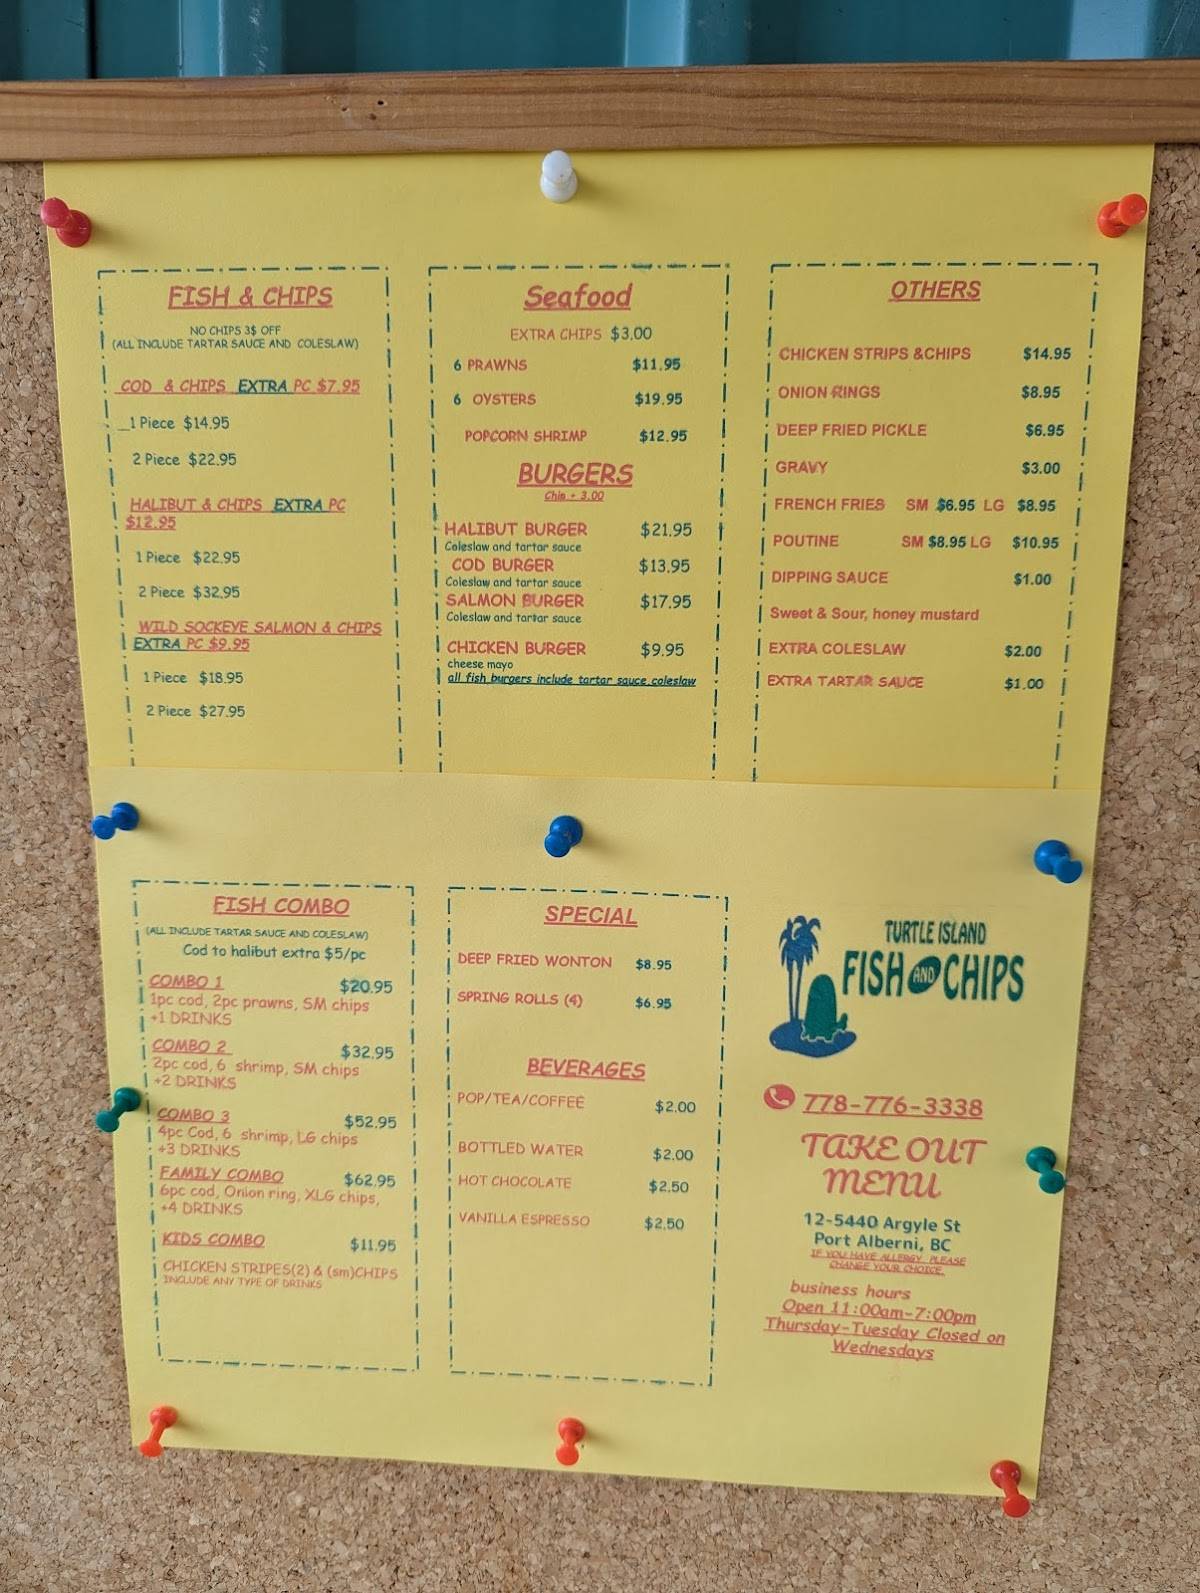 FISH & CHIPS
NO CHIPS 3$ OFF
(ALL INCLUDE TARTAR SAUCE AND COLESLAW)
COD & CHIPS EXTRA PC $7.95
1 Piece $14.95
2 Piece $22.95
HALIBUT & CHIPS EXTRA PC
$12.95
1 Piece $22.95
2 Piece $32.95
WILD SOCKEYE SALMON & CHIPS
EXTRA PC $9.95
1 Piece $18.95
2 Piece $27.95
Seafood
EXTRA CHIPS $3.00
6 PRAWNS $11.95
6 OYSTERS $19.95
POPCORN SHRIMP $12.95
BURGERS
Chip + 3.00
HALIBUT BURGER $21.95
Coleslaw and tartar sauce
COD BURGER $13.95
Coleslaw and tartar sauce
SALMON BURGER $17.95
Coleslaw and tartar sauce
CHICKEN BURGER $9.95
cheese mayo
all fish burgers include tartar sauce,coleslaw
OTHERS
CHICKEN STRIPS &CHIPS $14.95
ONION RINGS $8.95
DEEP FRIED PICKLE $6.95
GRAVY $3.00
FRENCH FRIES SM $6.95 LG $8.95
POUTINE SM $8.95 LG $10.95
DIPPING SAUCE $1.00
Sweet & Sour, honey mustard
EXTRA COLESLAW $2.00
EXTRA TARTAR SAUCE $1.00
FISH COMBO
(ALL INCLUDE TARTAR SAUCE AND COLESLAW)
Cod to halibut extra $5/pc
COMBO 1 $20.95
1pc cod, 2pc prawns, SM chips
+1 DRINKS
COMBO 2 $32.95
2pc cod, 6 shrimp, SM chips
+2 DRINKS
COMBO 3 $52.95
4pc Cod, 6 shrimp, LG chips
+3 DRINKS
FAMILY COMBO $62.95
6pc cod, Onion ring, XLG chips,
+4 DRINKS
KIDS COMBO $11.95
CHICKEN STRIPES(2) & (sm)CHIPS
INCLUDE ANY TYPE OF DRINKS
SPECIAL
DEEP FRIED WONTON $8.95
SPRING ROLLS (4) $6.95
BEVERAGES
POP/TEA/COFFEE $2.00
BOTTLED WATER $2.00
HOT CHOCOLATE $2.50
VANILLA ESPRESSO $2.50
TURTLE ISLAND
FISH AND CHIPS
778-776-3338
TAKE OUT
MENU
12-5440 Argyle St
Port Alberni, BC
IF YOU HAVE ALLERGY, PLEASE
CHANGE YOUR CHOICE.
business hours
Open 11:00am-7:00pm
Thursday-Tuesday Closed on
Wednesdays